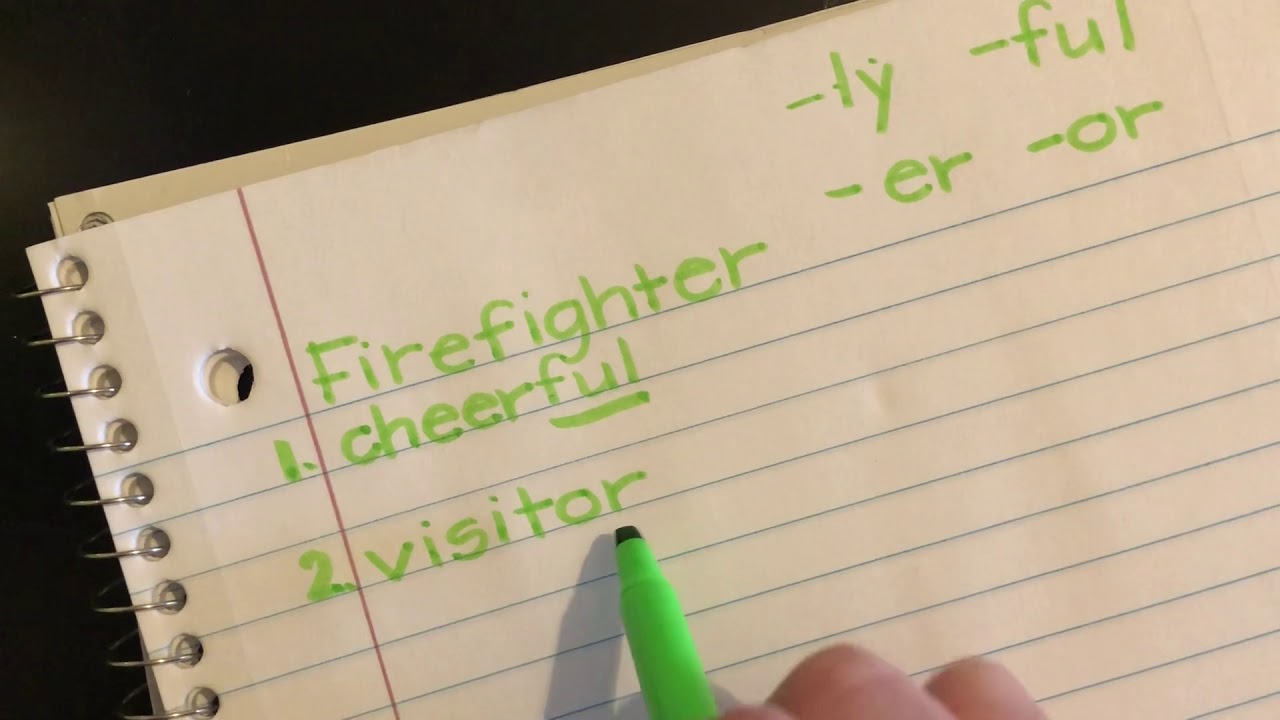 -ly -ful
-er -or
Firefighter
1. cheerful
2. visitor